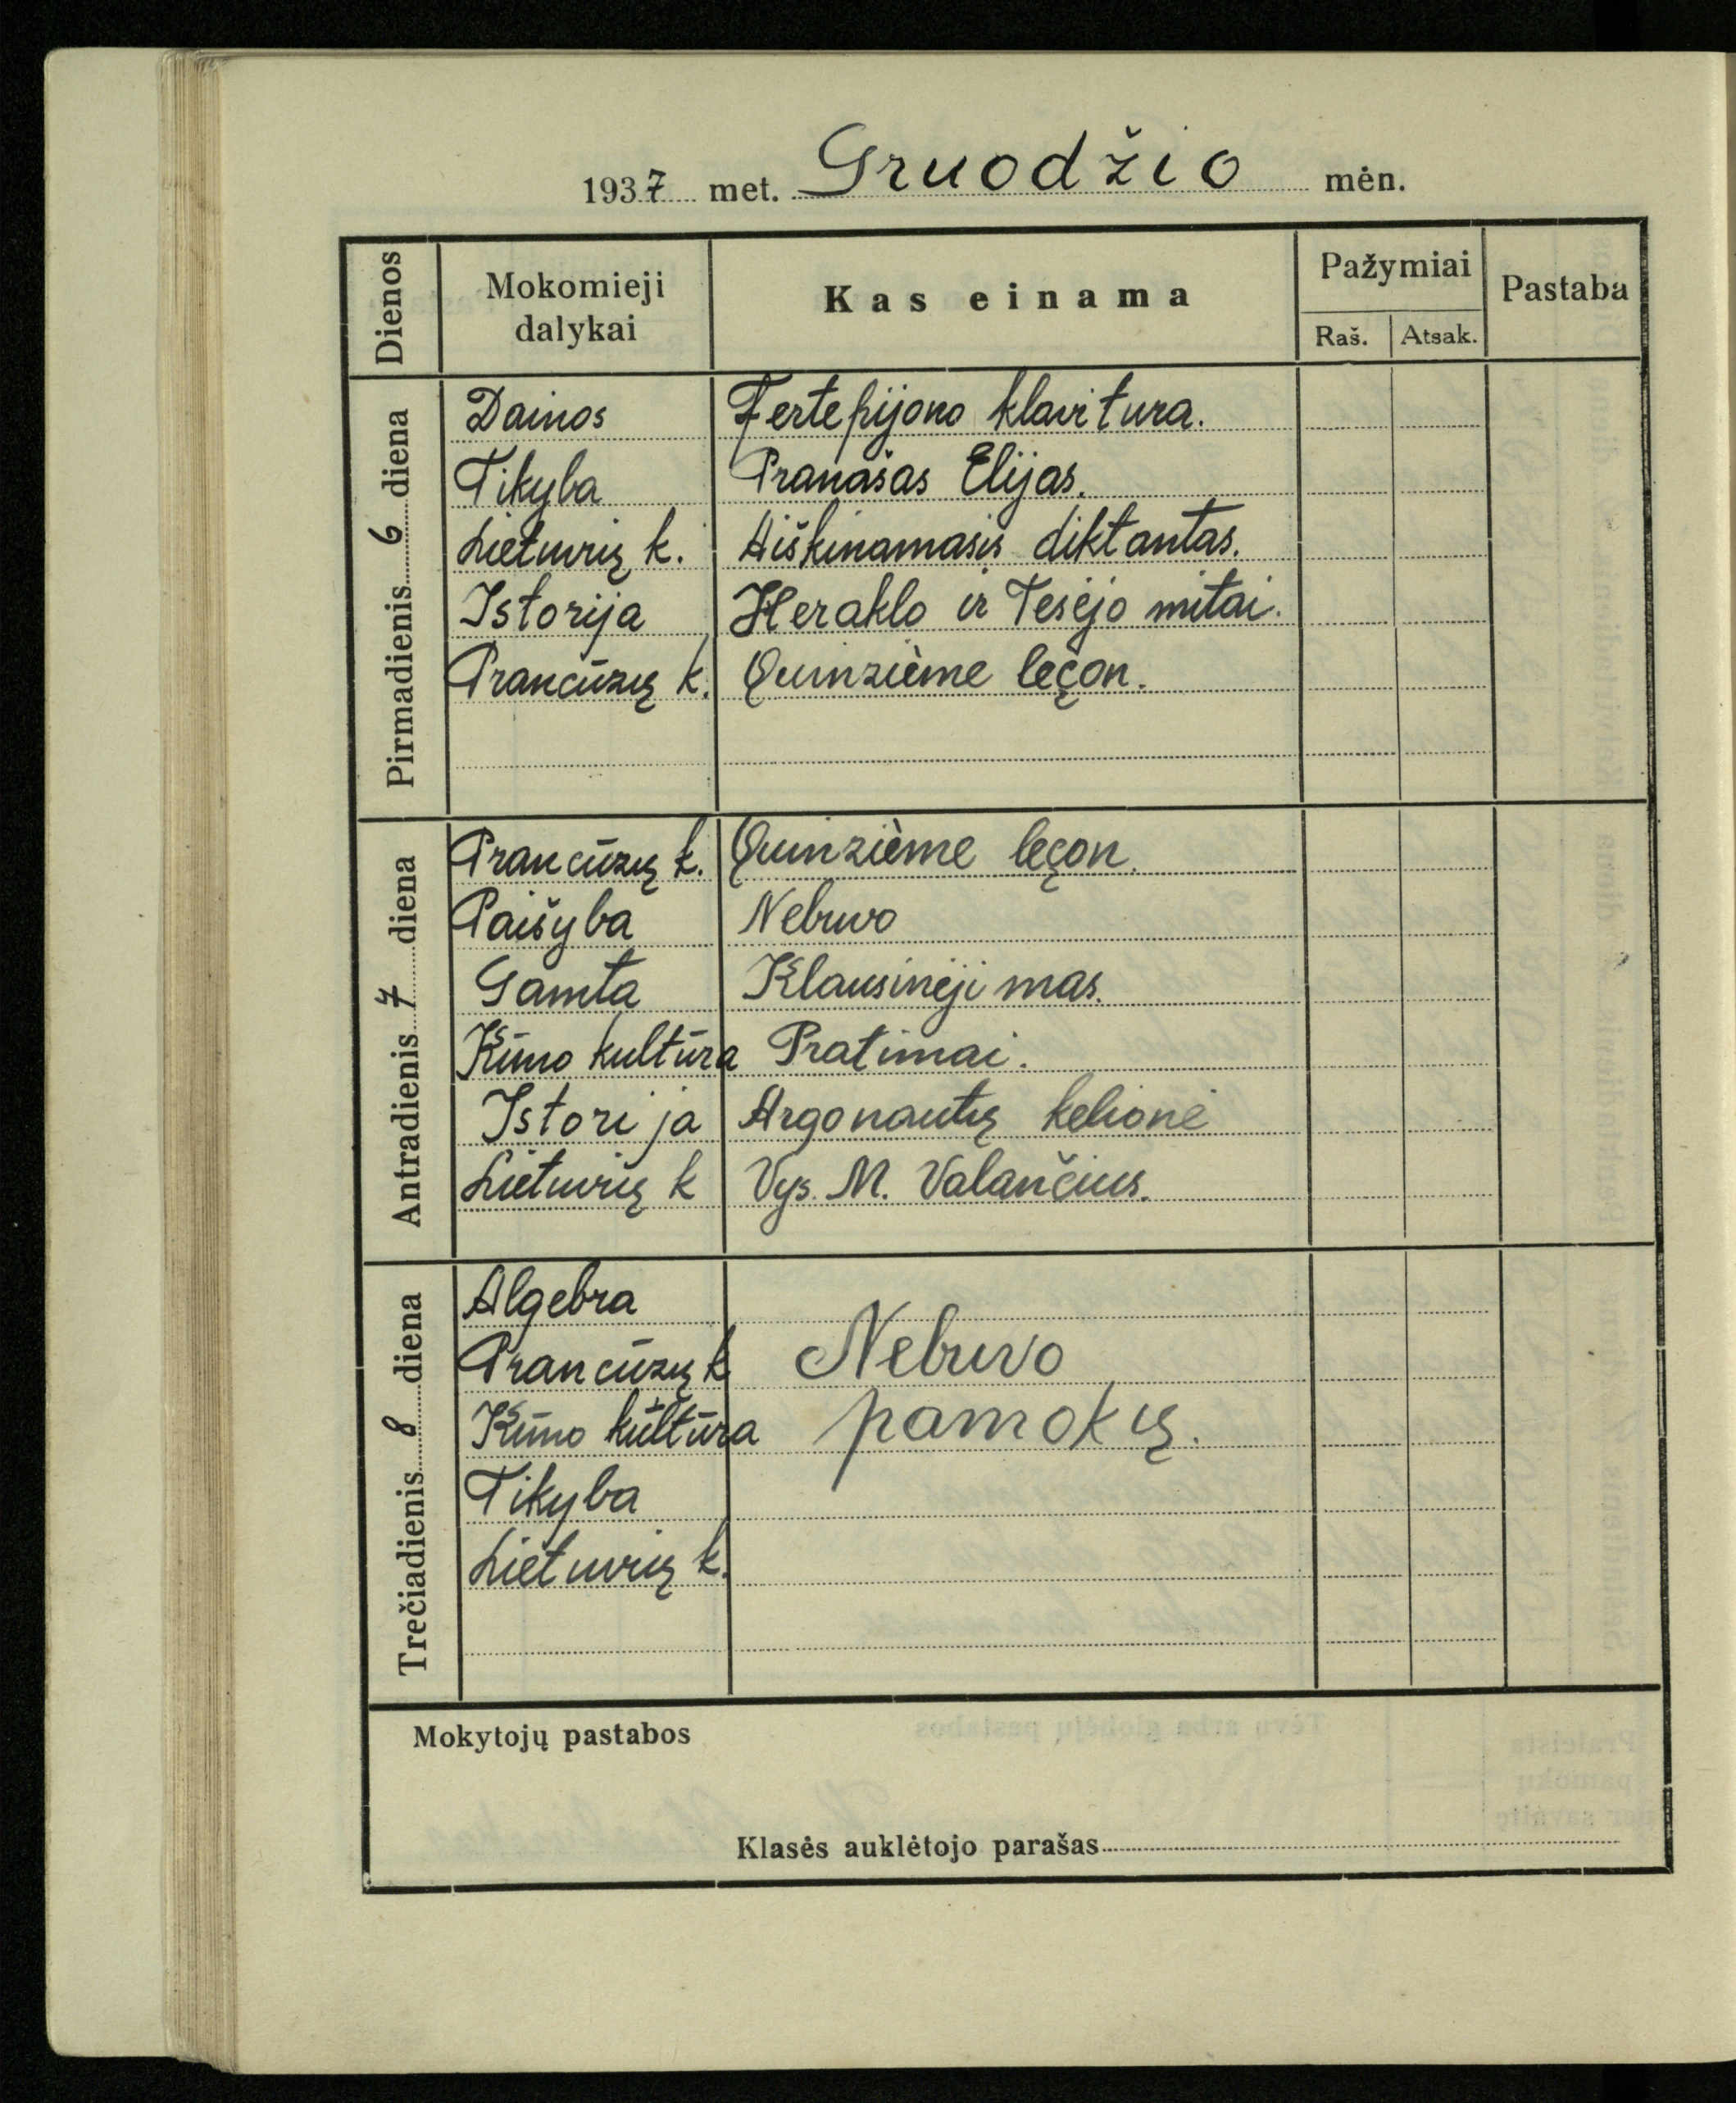 1937 met. Gruodžio mėn.
Dienos Mokomieji dalykai Kas einama Pažymiai Raš. Atsak. Pastaba
Pirmadienis 6 diena
Dainos Fertepijono klavitura.
Tikyba Pranašas Elijas.
Lietuvių k. Aiškinamasis diktantas.
Istorija Heraklo ir Tesėjo mitai.
Prancūzų k. Quinzième leçon.
Antradienis 7 diena
Prancūzų k. Quinzième leçon.
Paišyba Nebuvo
Gamta Klausinėjimas.
Kūno kultūra Pratimai.
Istorija Argonautų kelionė
Lietuvių k Vys. M. Valančius.
Trečiadienis 8 diena
Algebra
Prancūzų k Nebuvo
Kūno kultūra pamokų.
Tikyba
Lietuvių k.
Mokytojų pastabos
Klasės auklėtojo parašas